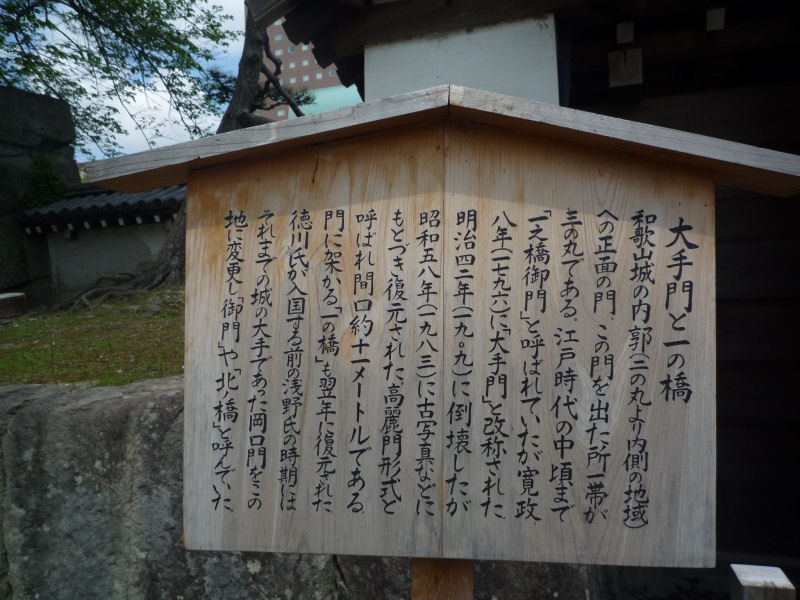 大手門と一の橋
和歌山城の内郭(二の丸より内側の地域)
への正面の門、この門を出た所一帯が
三の丸である、江戸時代の中頃まで
「一之橋御門」と呼ばれていたが寛政
八年(一七九六)に「大手門」と改称された
明治四二年(一九〇九)に倒壊したが
昭和五八年(一九八三)に古写真などに
もとづき復元された高麗門形式と
呼ばれ間口約十一メートルである
門に架かる「一の橋」も翌年に復元された
徳川氏が入国する前の浅野氏の時期には
それまでの城の大手であった岡口門をこの
地に変更し「御門」や「北ノ橋」と呼んでいた